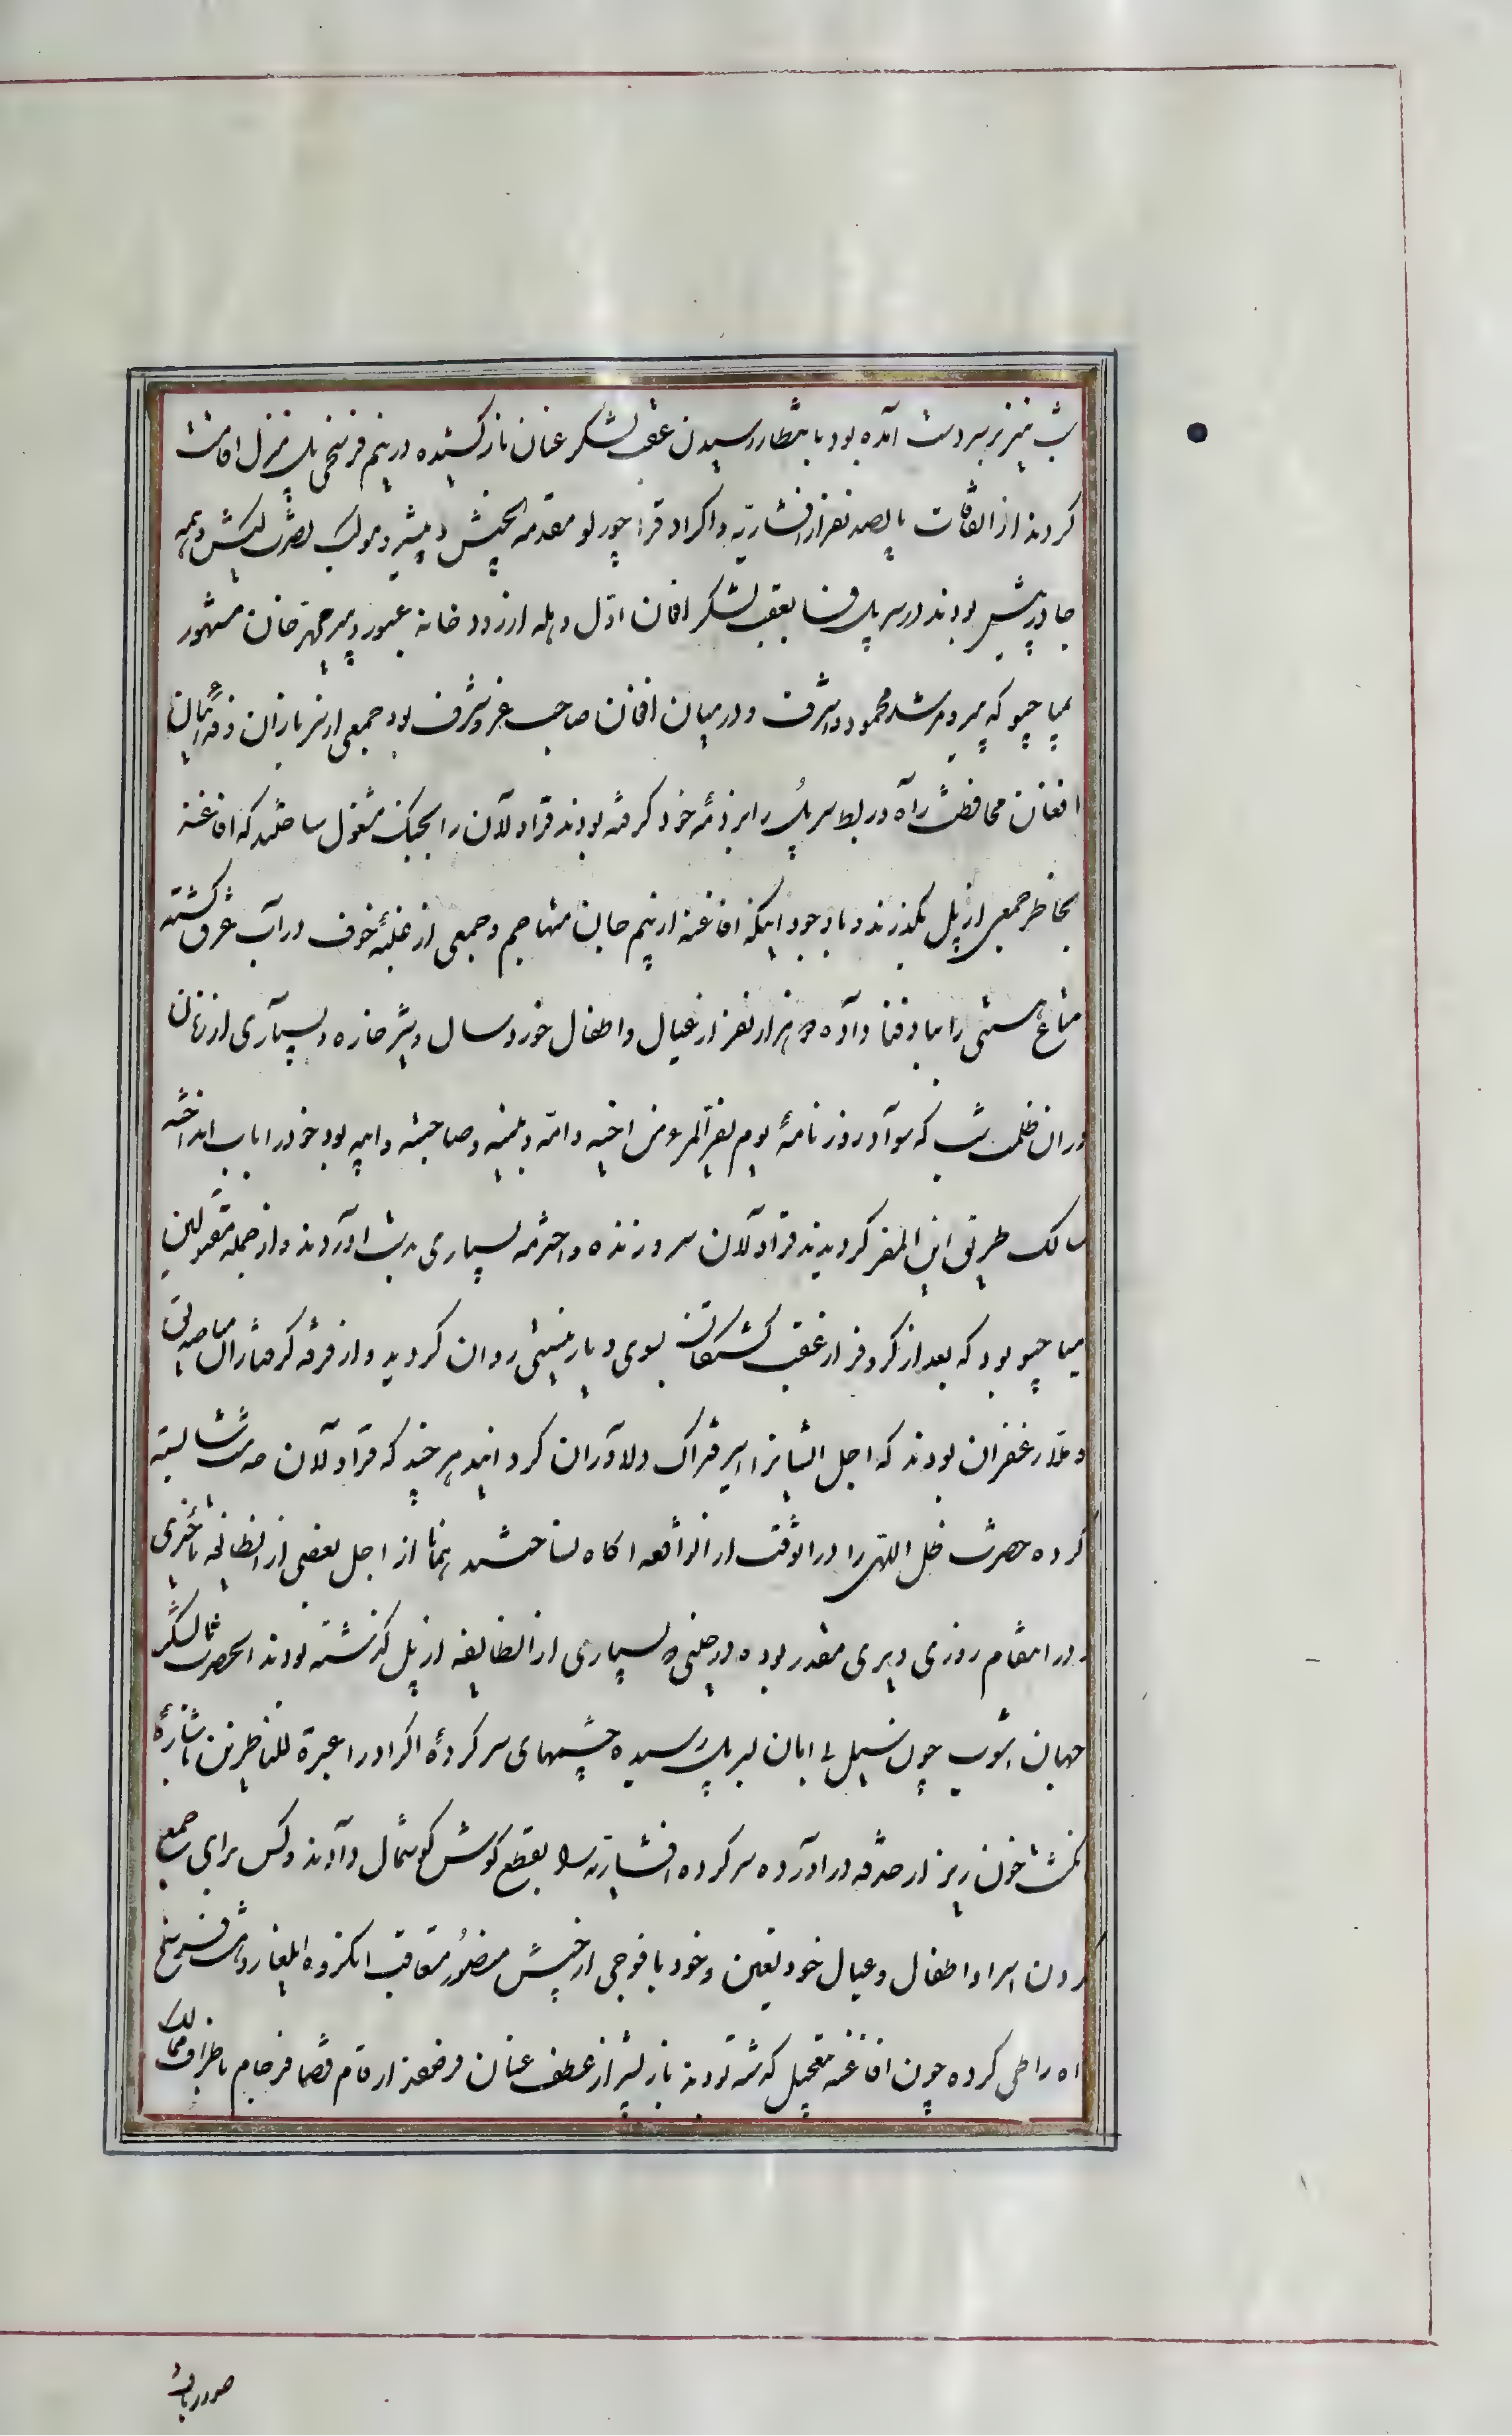 شب نیز بر سر دست آمده بود بانتظار رسیدن عقب لشکر عنان باز کشیده در نیم فرسخی پل منزل اقامت
کردند از اتفاقات پانصد نفر از افشاریه و اکراد قراچورلو مقدمه الجیش و پیشرو موکب نصرت کیش و همه
جا در پیش بودند در سر پل فسا بعقب لشکر افغان اول وهله از رود خانه عبور و پیر محمد خان مشهور
بمیاجیو که پیر و مرشد محمود و اشرف و در میان افغان صاحب عز و شرف بود جمعی از سربازان و فدائیان
افغان محافظت راه و ربط سر پل را بر ذمه خود گرفته بودند قراولان را بجنگ مشغول ساختند که افاغنه
بخاطر جمعی از پل بگذرند و با وجود اینکه افاغنه از بیم جان متهاجم و جمعی از غلبه خوف در آب غرق گشته
متاع هستی را بباد فنا داده دو هزار نفر از عیال و اطفال خورد سال و شیر خاره و بسیاری از زنان
در ان ظلمت شب که سواد روز نامه یوم یفر المرء من اخیه و امه و ابیه و صاحبته و بنیه بود خود را باب انداخته
سالک طریق این المفر گردیدند قراولان سر و زنده و اخترمه بسیاری بدست اوردند و از جمله مقتولین
میاجیو بود که بعد از کر و فر از عقب کشتکان بسوی دیار نیستی روان کردید و از فرقه گرفتاران ملا صدیق
و ملا زعفران بودند که اجل ایشانرا اسیر فتراک دلاوران کردانید هر چند که قراولان خدمت شایسته
کرده حضرت ظل اللهی را در انوقت از انواقعه اکاه نساختند همانا از اجل بعضی از انطایفه تاخیری
و در انمقام روزی دیری مقدر بوده در حینی که بسیاری از انطایفه از پل گذشته بودند انحضرت با لشکر
جهان اشوب چون سیل بی امان بسر پل رسیده چشمهای سرکرده اکراد را عبرة للناظرین باشاره
انکشت خون ریز از حدقه در اورده سرکرده افشاریه را بقطع کوش کوشمال دادند و کس برای جمع
کردن اسرا و اطفال و عیال خود تعین و خود با فوجی از جیش منصور متعاقب انکروه ایلغار و شش فرسخ
راه را طی کرده چون افاغنه بتعجیل گذشته بودند باز پس از عطف عنان فرموده ارقام قضا فرجام باطراف ممالک
صدور یافت